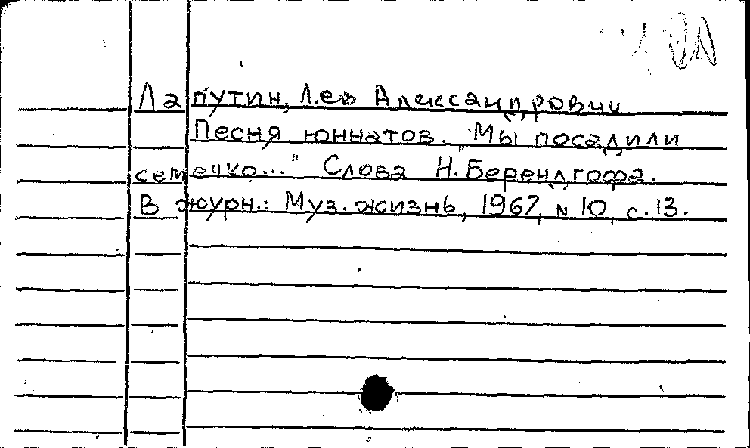 Лапутин, Лев Александрович
Песня юннатов. "Мы посадили
семечко..." Слова Н. Берендгофа.
В журн.: Муз. жизнь, 1967, № 10, с. 13.